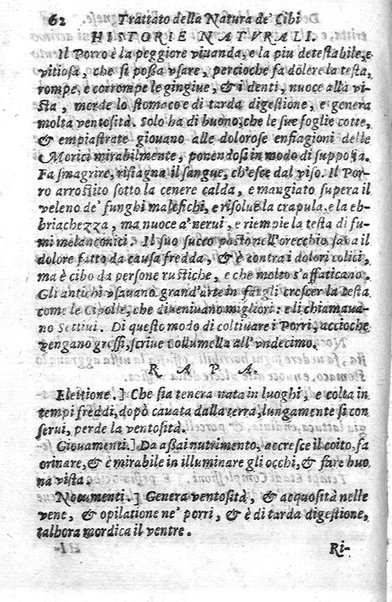 62 Trattato della Natura de' Cibi
HISTORIE NATVRALI.
Il Porro è la peggiore viuanda, e la piu detestabile, e
vitiosa, che si possa vsare, percioche fa dolere la testa,
rompe, e corrompe le gingiue, & i denti, nuoce alla vi-
sta, morde lo stomaco e di tarda digestione, e genera
molta ventosità. Solo ha di buono, che le sue foglie cotte,
& empiastrate giouano alle dolorose enfiagioni delle
Morici mirabilmente, ponendosi in modo di supposta.
Fa smagrire, ristagna il sangue, ch'esce dal viso. Il Por
ro arrostito sotto la cenere calda, e mangiato supera il
veleno de' funghi malefichi, e risolue la crapula, e la eb-
briachezza, ma nuoce a' nerui, e riempie la testa di fu-
mi melanconici. Il suo succo posto nell'orecchio sana il
dolore fatto da causa fredda, & è contra i dolori colici,
ma è cibo da persone rustiche, e che molto s'affaticano.
Gli antichi vsauano grand'arte in fargli crescer la testa
come le Cipolle, che diueniuano migliori: e li chiamaua
no Settiui. Di questo modo di coltiuare i Porri, accioche
vengano grossi, scriue Collumella all'vndecimo.
R A P A.
Elettione.] Che sia tenera nata in luoghi, e colta in
tempi freddi, dopò cauata dalla terra, lungamente si con
serui, perde la ventosità.
Giouamenti.] Da assai nutrimento, accresce il coito, fa
orinare, & è mirabile in illuminare gli occhi, & fare buo
na vista.
Nocumenti.] Genera ventosità, & acquosità nelle
vene, & opilatione ne' porri, & è di tarda digestione,
talhora mordica il ventre.
Ri-